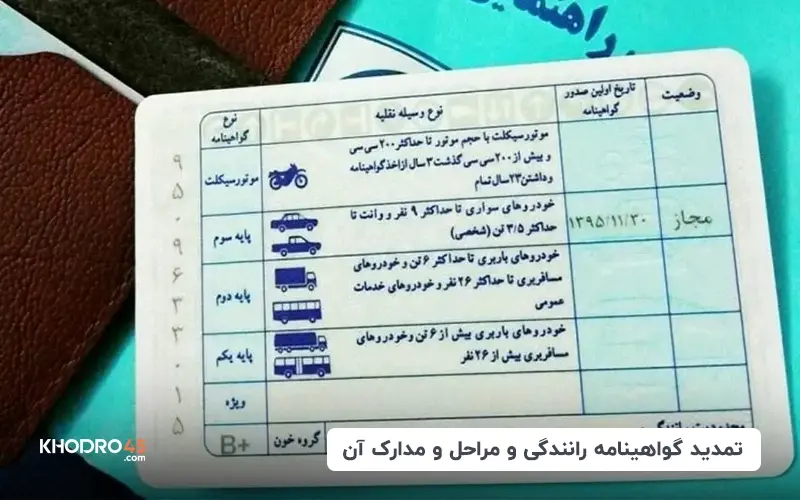 راهنمایی
وضعیت
تاریخ اولین صدور گواهینامه
نوع وسیله نقلیه
نوع گواهینامه
موتورسیکلت با حجم موتور تا حداکثر ۲۰۰ سی سی
و بیش از ۲۰۰ سی سی گذشت ۳ سال از اخذ گواهینامه
و داشتن ۲۳ سال تمام
موتورسیکلت
مجاز
۱۳۹۵/۱۱/۳۰
خودروهای سواری تا حداکثر ۹ نفر و وانت تا
حداکثر ۳/۵ تن (شخصی)
پایه سوم
خودروهای باربری تا حداکثر ۶ تن و خودروهای
مسافربری تا حداکثر ۲۶ نفر و خودروهای خدمات
عمومی
پایه دوم
خودروهای باربری بیش از ۶ تن و خودروهای
مسافربری بیش از ۲۶ نفر
پایه یکم
ویژه
گروه خون
B+
۹
۵
۰
۹
۶
۳
۳
۰
۱
۵
تمدید گواهینامه رانندگی و مراحل و مدارک آن
KHODRO45
.com